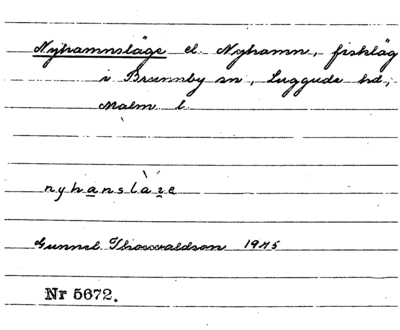 Nyhamnsläge el. Nyhamn, fiskläg
i Brunnby sn, Luggude hd,
Malm. l.
nyhansläze
Gunnel Thorvaldson 1945
Nr 5672.